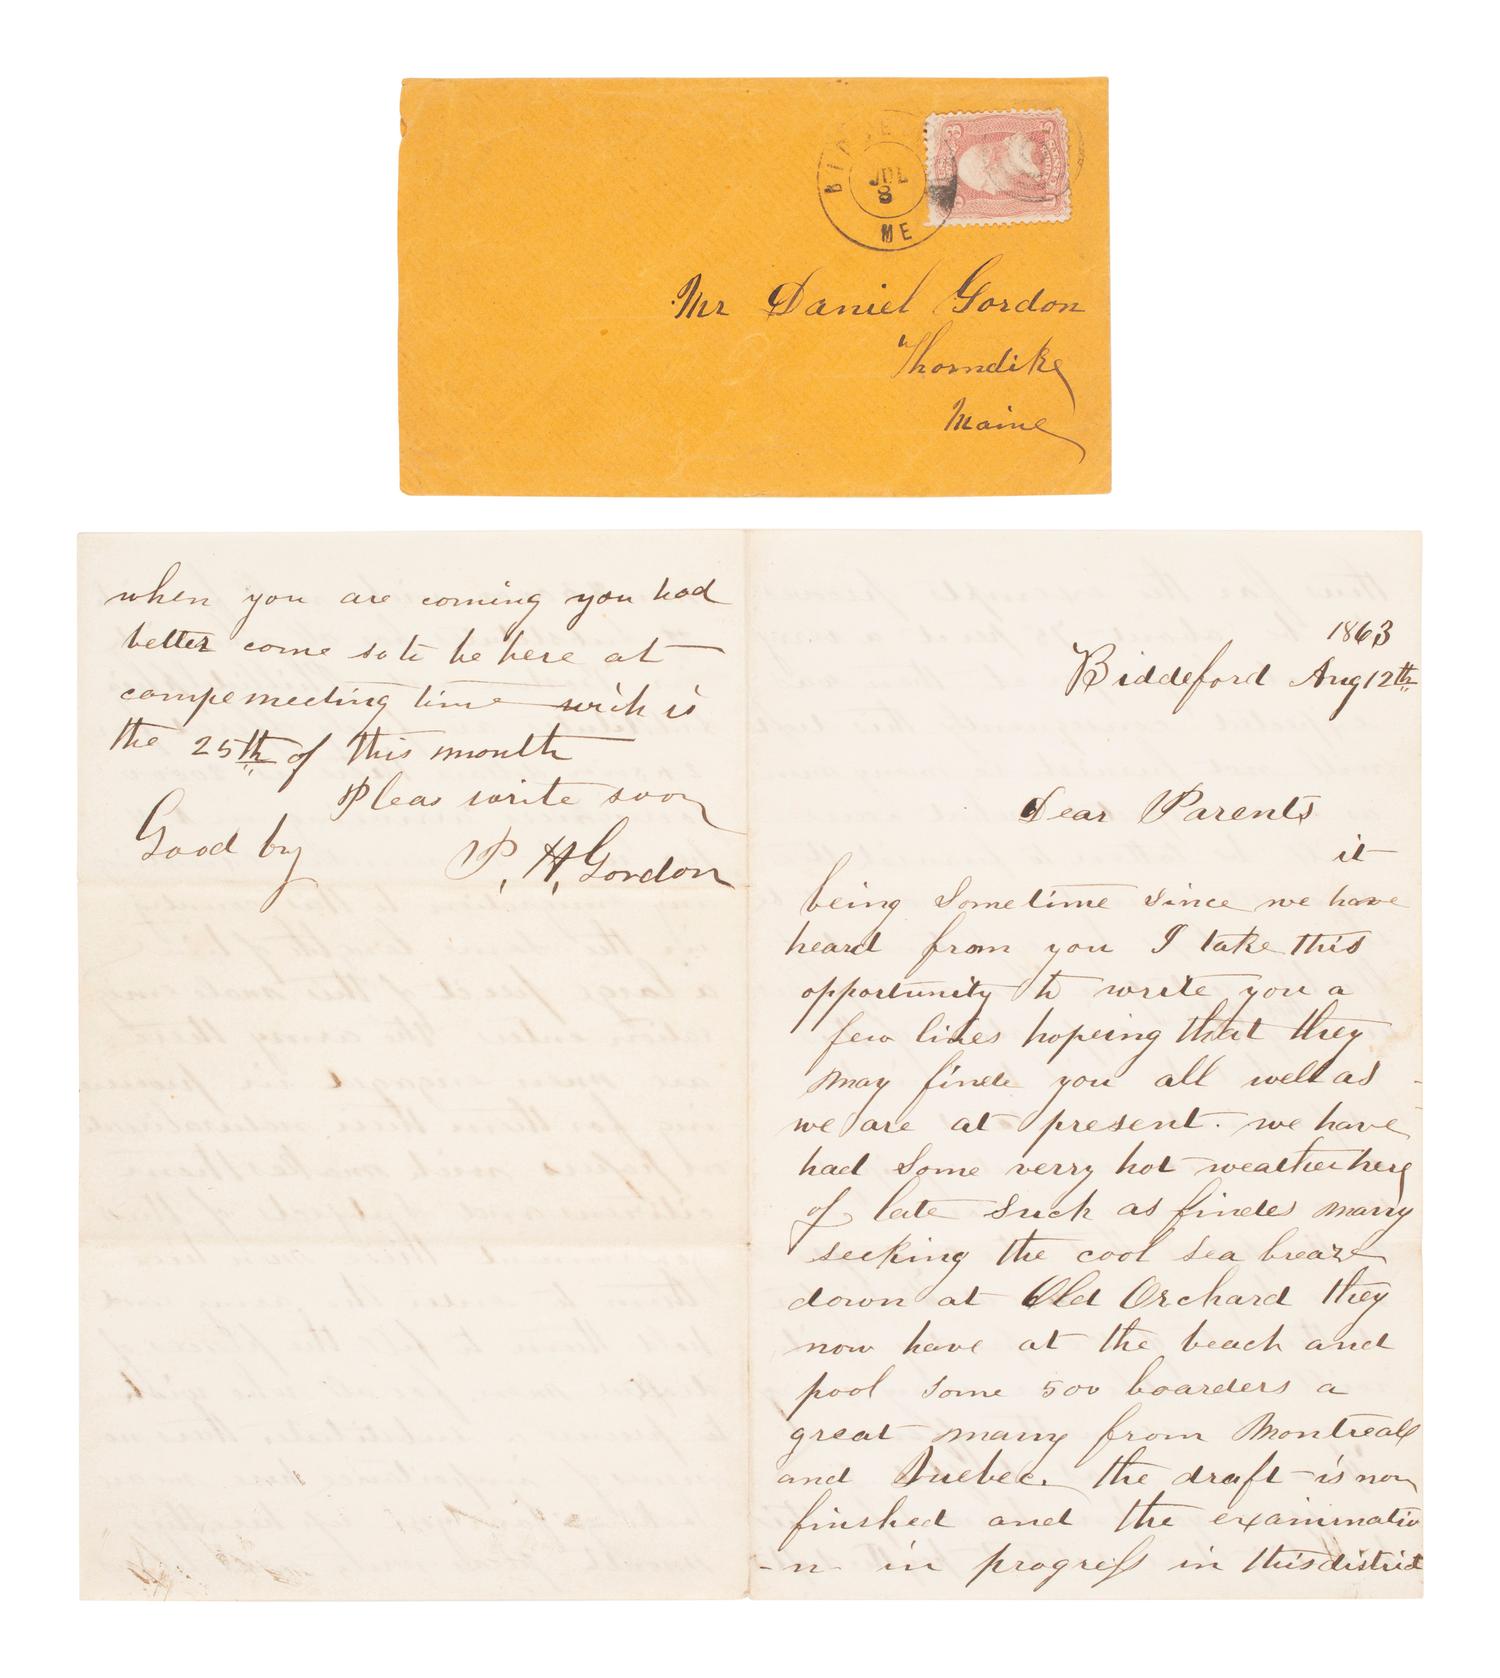 BIDDE
JUL
8
ME
3
3
Mr Daniel Gordon
Thorndike
Maine
when you are coming you had
better come so to be here at
campemeeting time wich is
the 25th of this month
Pleas write soon
Good by
P. H. Gordon
1863
Biddeford Aug 12th
Dear Parents
it
being sometime since we have
heard from you I take this
opportunity to write you a
few lines hopeing that they
may finde you all well as
we are at present. we have
had some verry hot weather here
of late such as findes many
seeking the cool sea breaze
down at Old Orchard they
now have at the beach and
pool some 500 boarders a
great many from Montreall
and Quebec. the draft is now
finshed and the examinnatio
-n in progress in this district